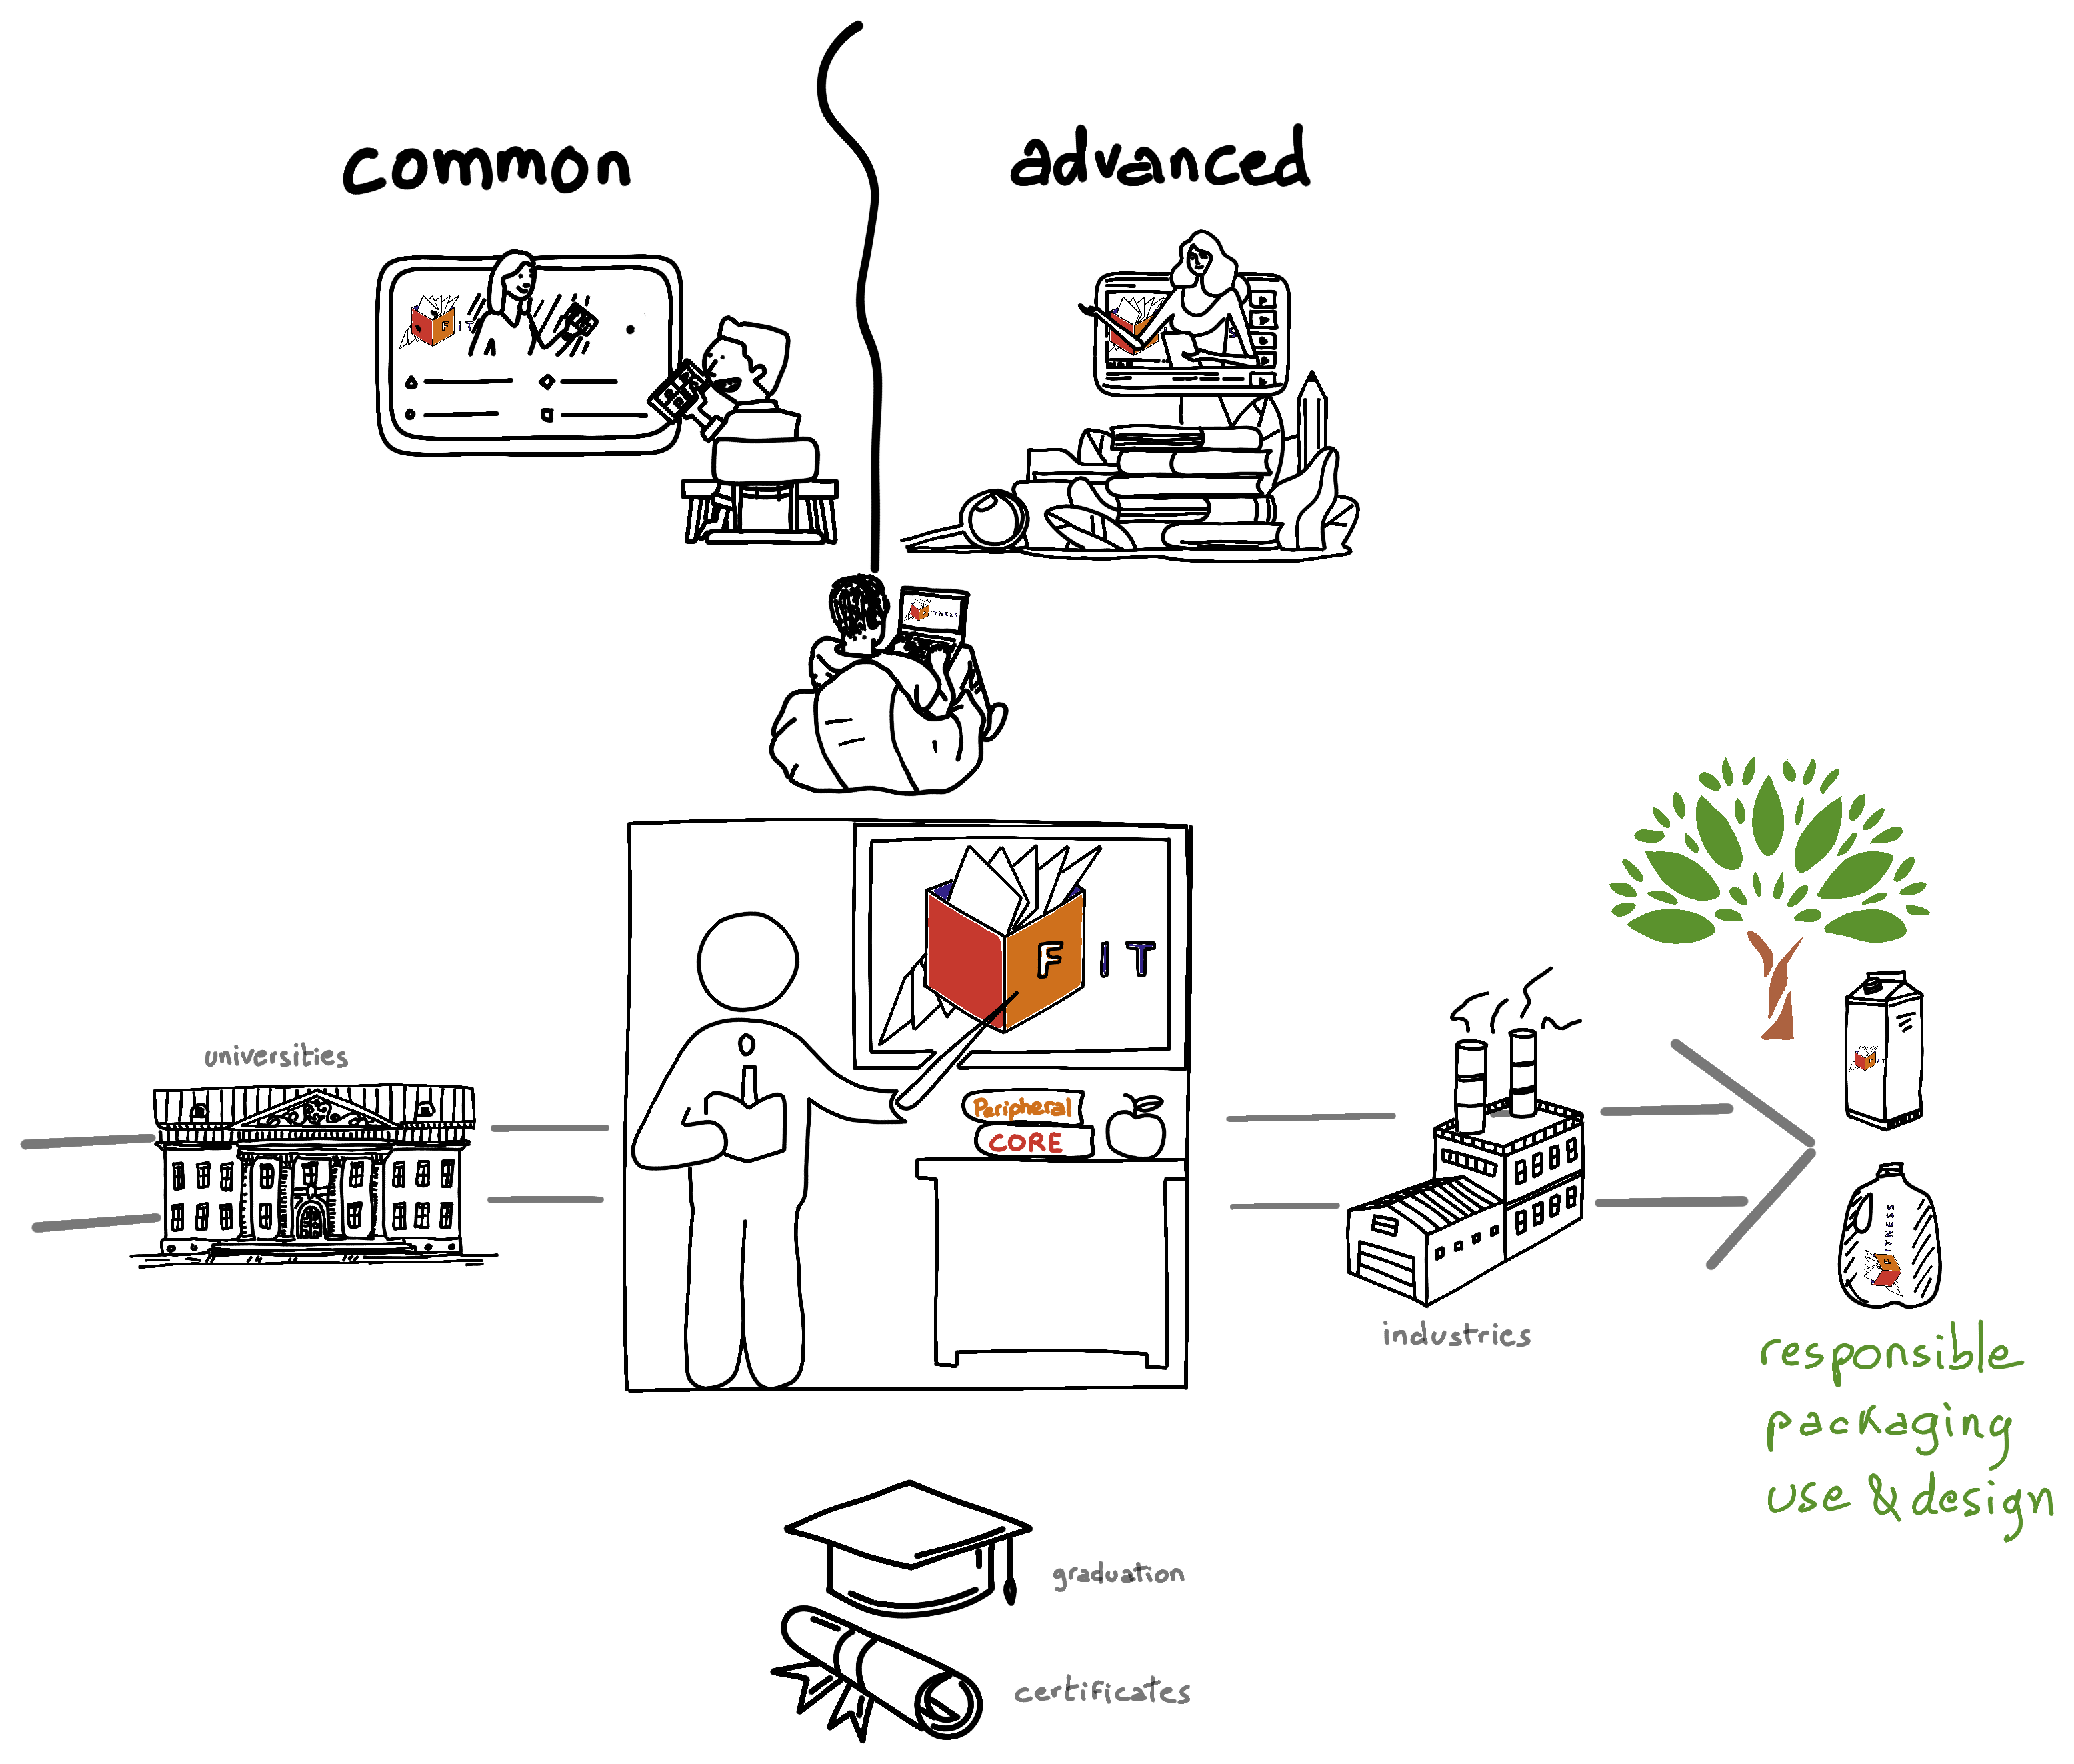 common
advanced
F IT
S
ITNESS
F IT
universities
Peripheral
CORE
industries
FITNESS
responsible
packaging
use & design
graduation
certificates